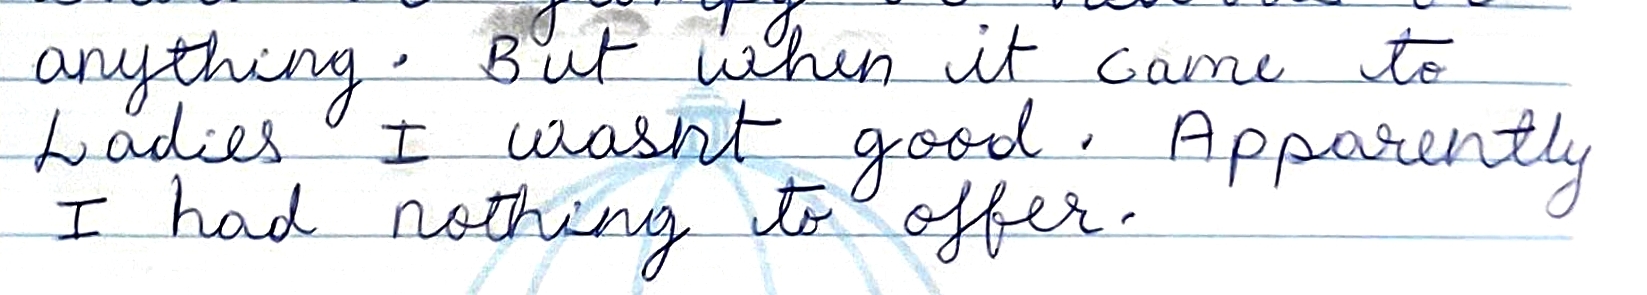 anything. But when it came to
Ladies I wasnt good. Apparently
I had nothing to offer.